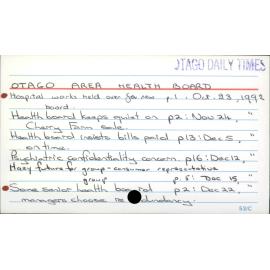 OTAGO DAILY TIMES
OTAGO AREA HEALTH BOARD
Hospital works held over for new p.1. Oct. 23, 1992
board.
Health board keeps quiet on p2: Nov 24, "
Cherry Farm sale.
Health board insists bills paid p13: Dec 5, "
on time.
Psychiatric confidentiality concern. p16: Dec 12, "
Hazy future for group - consumer representative
group p.5: Dec 15, "
Some senior health board p2: Dec 22, "
managers choose redundancy.